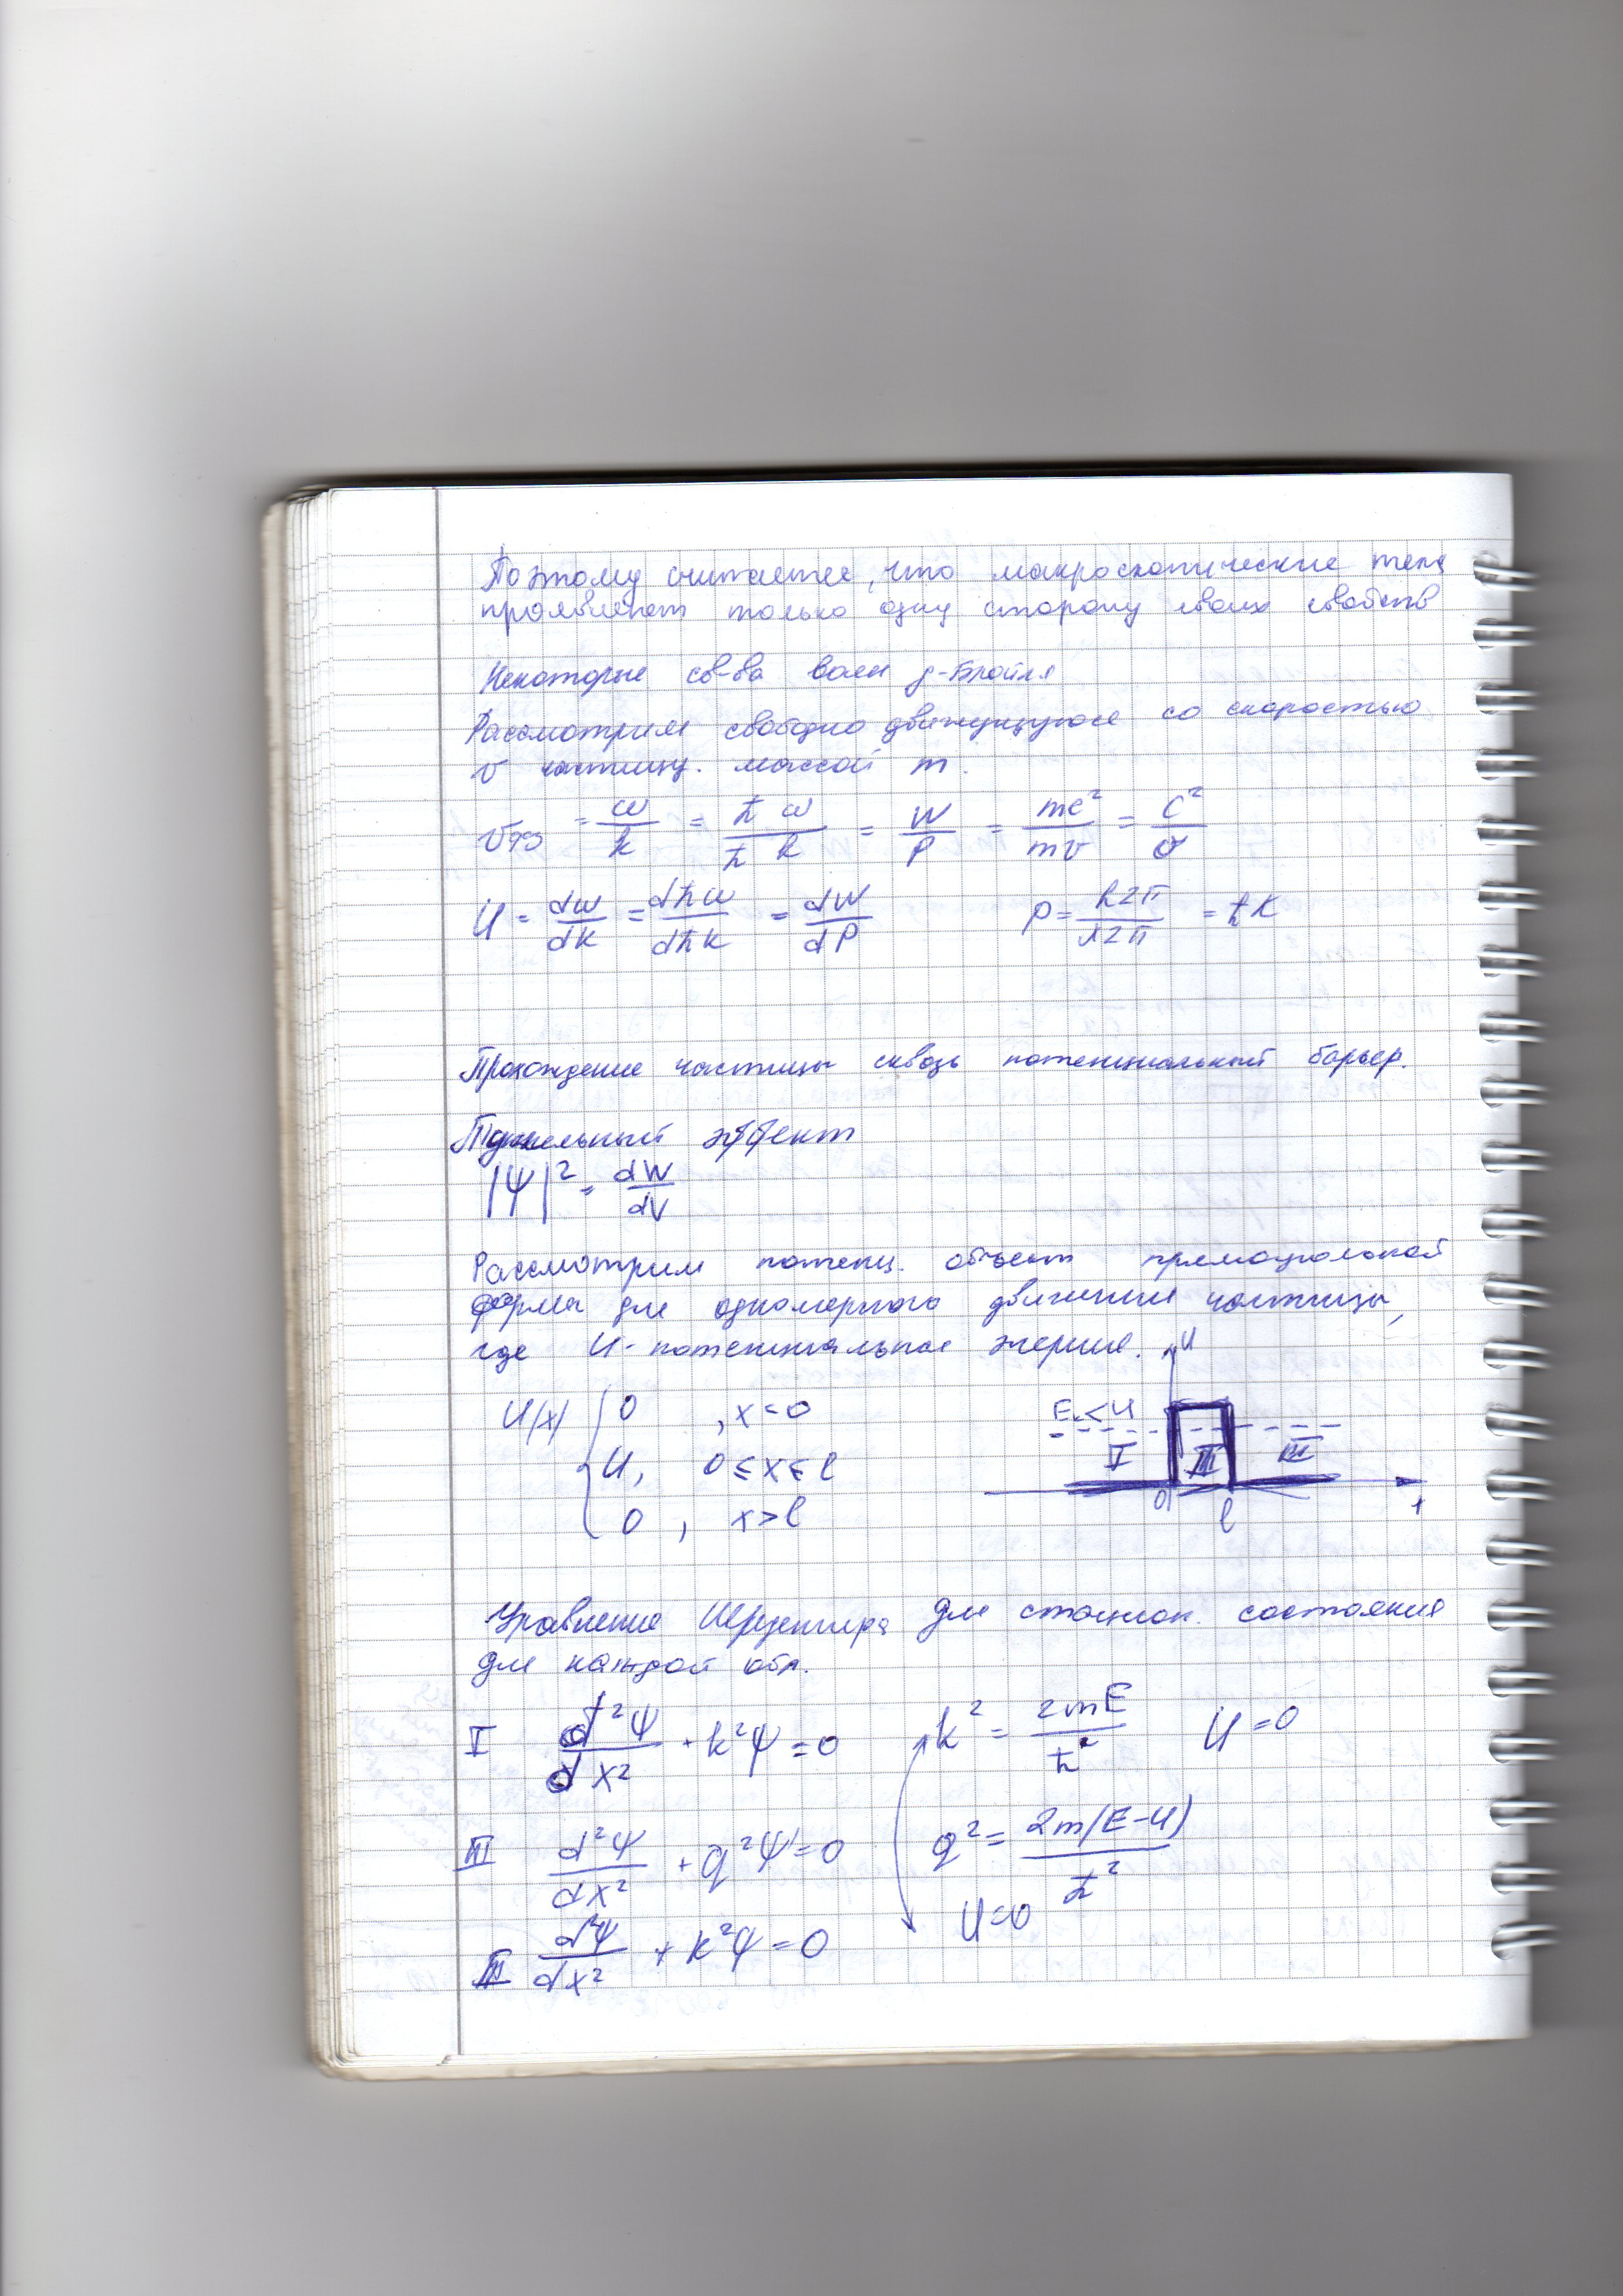 Поэтому считается, что макроскопические тела
проявляют только одну сторону своих свойств
Некоторые св-ва волн д-Бройля
Рассмотрим свободно движущуюся со скоростью
v частицу. массой m.
Vфз = ω/k = ħω/ħk = W/P = mc²/mv = c²/v
U = dω/dk = dħω/dħk = dW/dP    p = h2π/λ2π = ħK
Прохождение частицы сквозь потенциальный барьер.
Туннельный эффект
|Ψ|² = dW/dV
Рассмотрим потенц. объект прямоугольной
формы для одномерного движения частицы,
где U - потенциальная энергия.
U
U(x) { 0 , x=0
U, 0≤x≤l
0 , x>l
E<U
I II III
0 l
Уравнение Шредингера для стацион. состояния
для каждой обл.
I d²Ψ/dx² + k²Ψ = 0    k² = 2mE/ħ²    U=0
II d²Ψ/dx² + q²Ψ = 0    q² = 2m(E-U)/ħ²
III d²Ψ/dx² + k²Ψ = 0    U=0